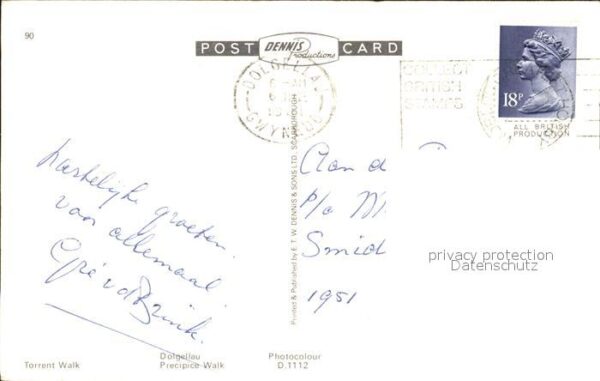 90
POST DENNIS Productions CARD
DOLGELLAU
GWYNEDD
COLLECT
BRITISH
STAMPS
18P
ALL BRITISH
PRODUCTION
Hartelijke groeten
van allemaal
Gré v d Brink.
Aan d
P/o M
Smid
1951
privacy protection
Datenschutz
Printed & Published by E. T. W. DENNIS & SONS LTD., SCARBOROUGH
Torrent Walk
Dolgellau
Precipice Walk
Photocolour
D.1112